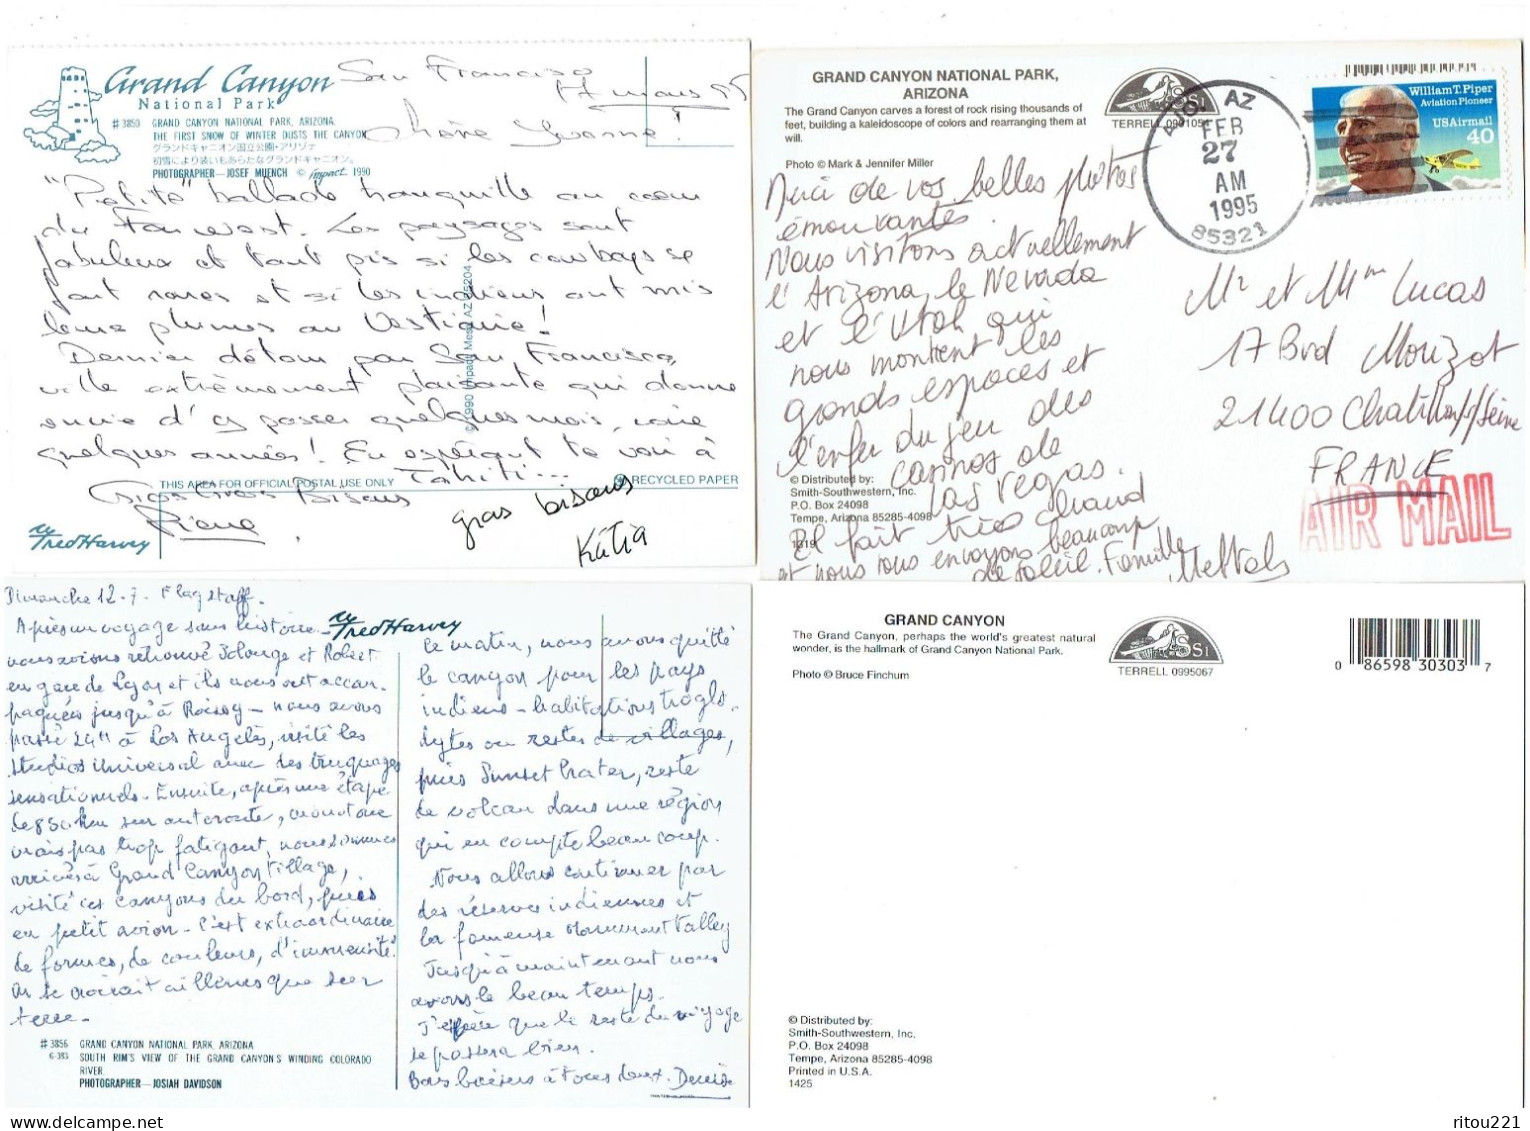 Grand Canyon
National Park
San Francisco
17 mars 95
# 3850 GRAND CANYON NATIONAL PARK, ARIZONA
THE FIRST SNOW OF WINTER DUSTS THE CANYON
グランドキャニオン国立公園・アリゾナ
初雪により装いもあらたなグランドキャニオン。
PHOTOGRAPHER—JOSEF MUENCH © impact 1990
Chère Yvonne!
"Petite" ballade tranquille au coeur
du Far west. Les paysages sont
fabuleux et tant pis si les cowboys se
font rares et si les indiens ont mis
leurs plumes au Vestiaire!
Dernier détour par San Francisco,
ville extrêmement plaisante qui donne
envie d'y passer quelques mois, voire
quelques années! En espérant te voir à
Tahiti...
© 1990 Impact Mesa AZ 85204
THIS AREA FOR OFFICIAL POSTAL USE ONLY
RECYCLED PAPER
Gros Gros Bisous
Pierre
gros bisous
Katia
Fred Harvey
GRAND CANYON NATIONAL PARK,
ARIZONA
The Grand Canyon carves a forest of rock rising thousands of
feet, building a kaleidoscope of colors and rearranging them at
will.
Photo © Mark & Jennifer Miller
SSi
TERRELL 0991054
AJO, AZ
FEB
27
AM
1995
85321
William T. Piper
Aviation Pioneer
USAirmail
40
Merci de vos belles photos
émouvantes.
Nous visitons actuellement
l'Arizona, le Nevada
et l'Utah qui
nous montrent les
grands espaces et
l'enfer du jeu des
casinos de
Las Vegas.
Il fait très chaud
et nous vous envoyons beaucoup
de soleil. Famille
Mr et Mme Lucas
17 Bvd Morizot
21400 Chatillon s/Seine
FRANCE
AIR MAIL
© Distributed by:
Smith-Southwestern, Inc.
P.O. Box 24098
Tempe, Arizona 85285-4098
Dimanche 12-7- Flagstaff.
Fred Harvey
Après un voyage sans histoire -
nous avions retrouvé Solange et Robert
en gare de Lyon et ils nous ont accom-
pagnés jusqu'à Roissy - nous avons
passé 24H à Los Angelès, visité les
studios Universal avec des truquages
sensationnels - Ensuite, après une étape
de 850 km sur autoroute, monotone
mais pas trop fatigant, nous sommes
arrivés à Grand Canyon Village,
visité ces canyons du bord, puis
en petit avion - C'est extraordinaire
de formes, de couleurs, d'immensité.
On se croirait ailleurs que sur
terre -
# 3856 GRAND CANYON NATIONAL PARK, ARIZONA
G-383 SOUTH RIM'S VIEW OF THE GRAND CANYON'S WINDING COLORADO
RIVER
PHOTOGRAPHER—JOSIAH DAVIDSON
Ce matin, nous avons quitté
le canyon pour les pays
indiens - habitations troglo-
dytes ou restes de villages,
puis Sunset Crater, reste
de volcan dans une région
qui en compte beaucoup.
Nous allons continuer par
des réserves indiennes et
la fameuse Monument Valley
Jusqu'à maintenant nous
avons le beau temps.
J'espère que le reste du voyage
se passera bien.
Bons baisers à tous deux. Denise
GRAND CANYON
The Grand Canyon, perhaps the world's greatest natural
wonder, is the hallmark of Grand Canyon National Park.
Photo © Bruce Finchum
SSi
TERRELL 0995067
0 86598 30303 7
© Distributed by:
Smith-Southwestern, Inc.
P.O. Box 24098
Tempe, Arizona 85285-4098
Printed in U.S.A.
1425
ritou221